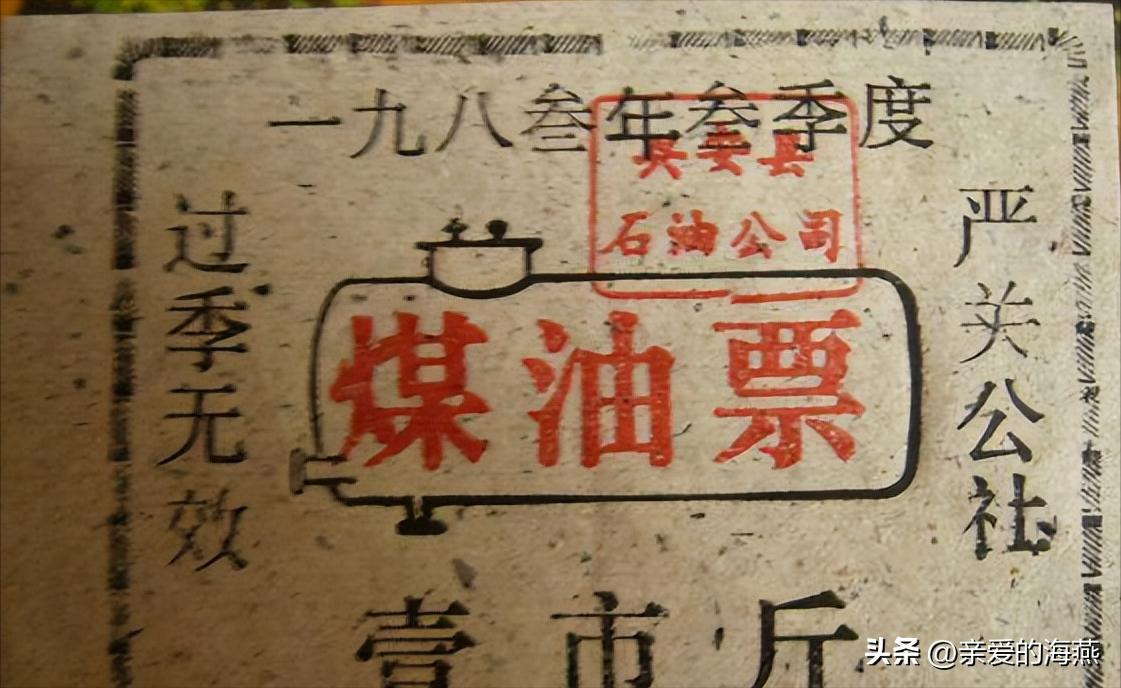 一九八叁年叁季度
兴安县
石油公司
过季无效
严关公社
煤油票
壹市斤
头条 @亲爱的海燕